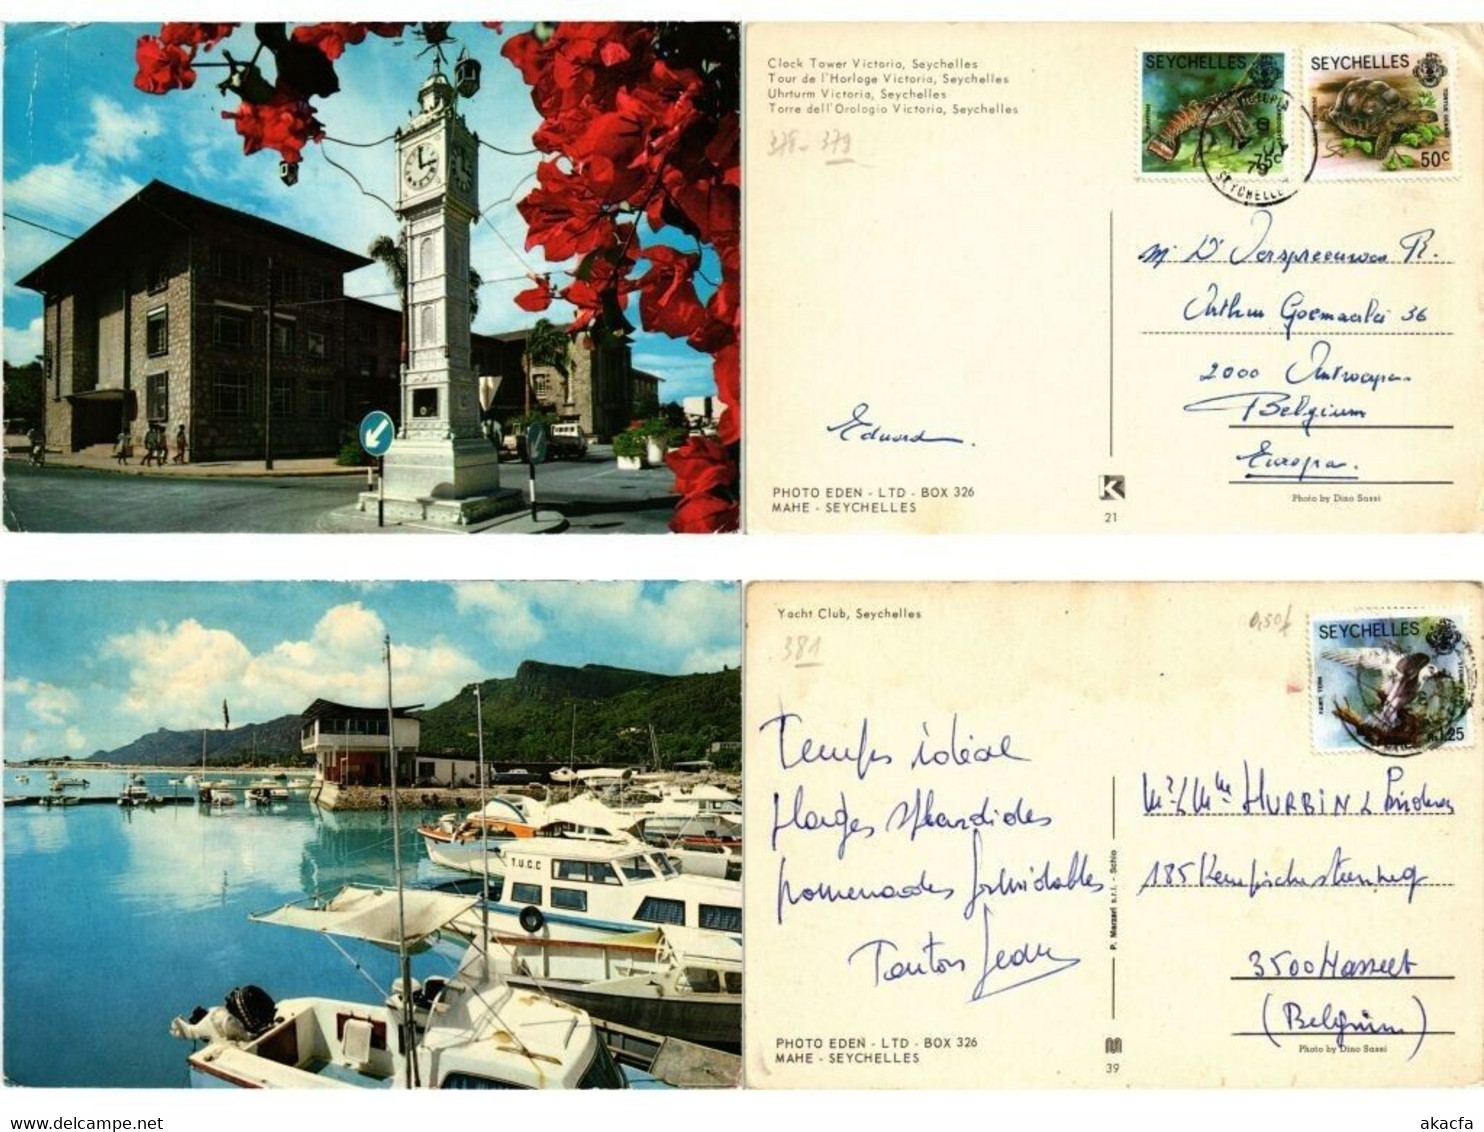 Clock Tower Victoria, Seychelles
Tour de l'Horloge Victoria, Seychelles
Uhrturm Victoria, Seychelles
Torre dell'Orologio Victoria, Seychelles
378-379
SEYCHELLES
SEYCHELLES
50c
75c
VICTORIA
SEYCHELLES
R.
36
2000 Antwerpen
Belgium
Europa.
Eduard.
PHOTO EDEN - LTD - BOX 326
MAHE - SEYCHELLES
K
21
Photo by Dino Sassi
T.U.C.C
Yacht Club, Seychelles
381
0,50
SEYCHELLES
FAIRY TERN
R1.25
Temps idéal
plages splendides
promenades formidables
Tonton Jean
Mr & Mme HURBIN
185 Kempischesteenweg
3500 Hasselt
(Belgium)
P. Marzari s.r.l. - Schio
PHOTO EDEN - LTD - BOX 326
MAHE - SEYCHELLES
39
Photo by Dino Sassi
akacfa